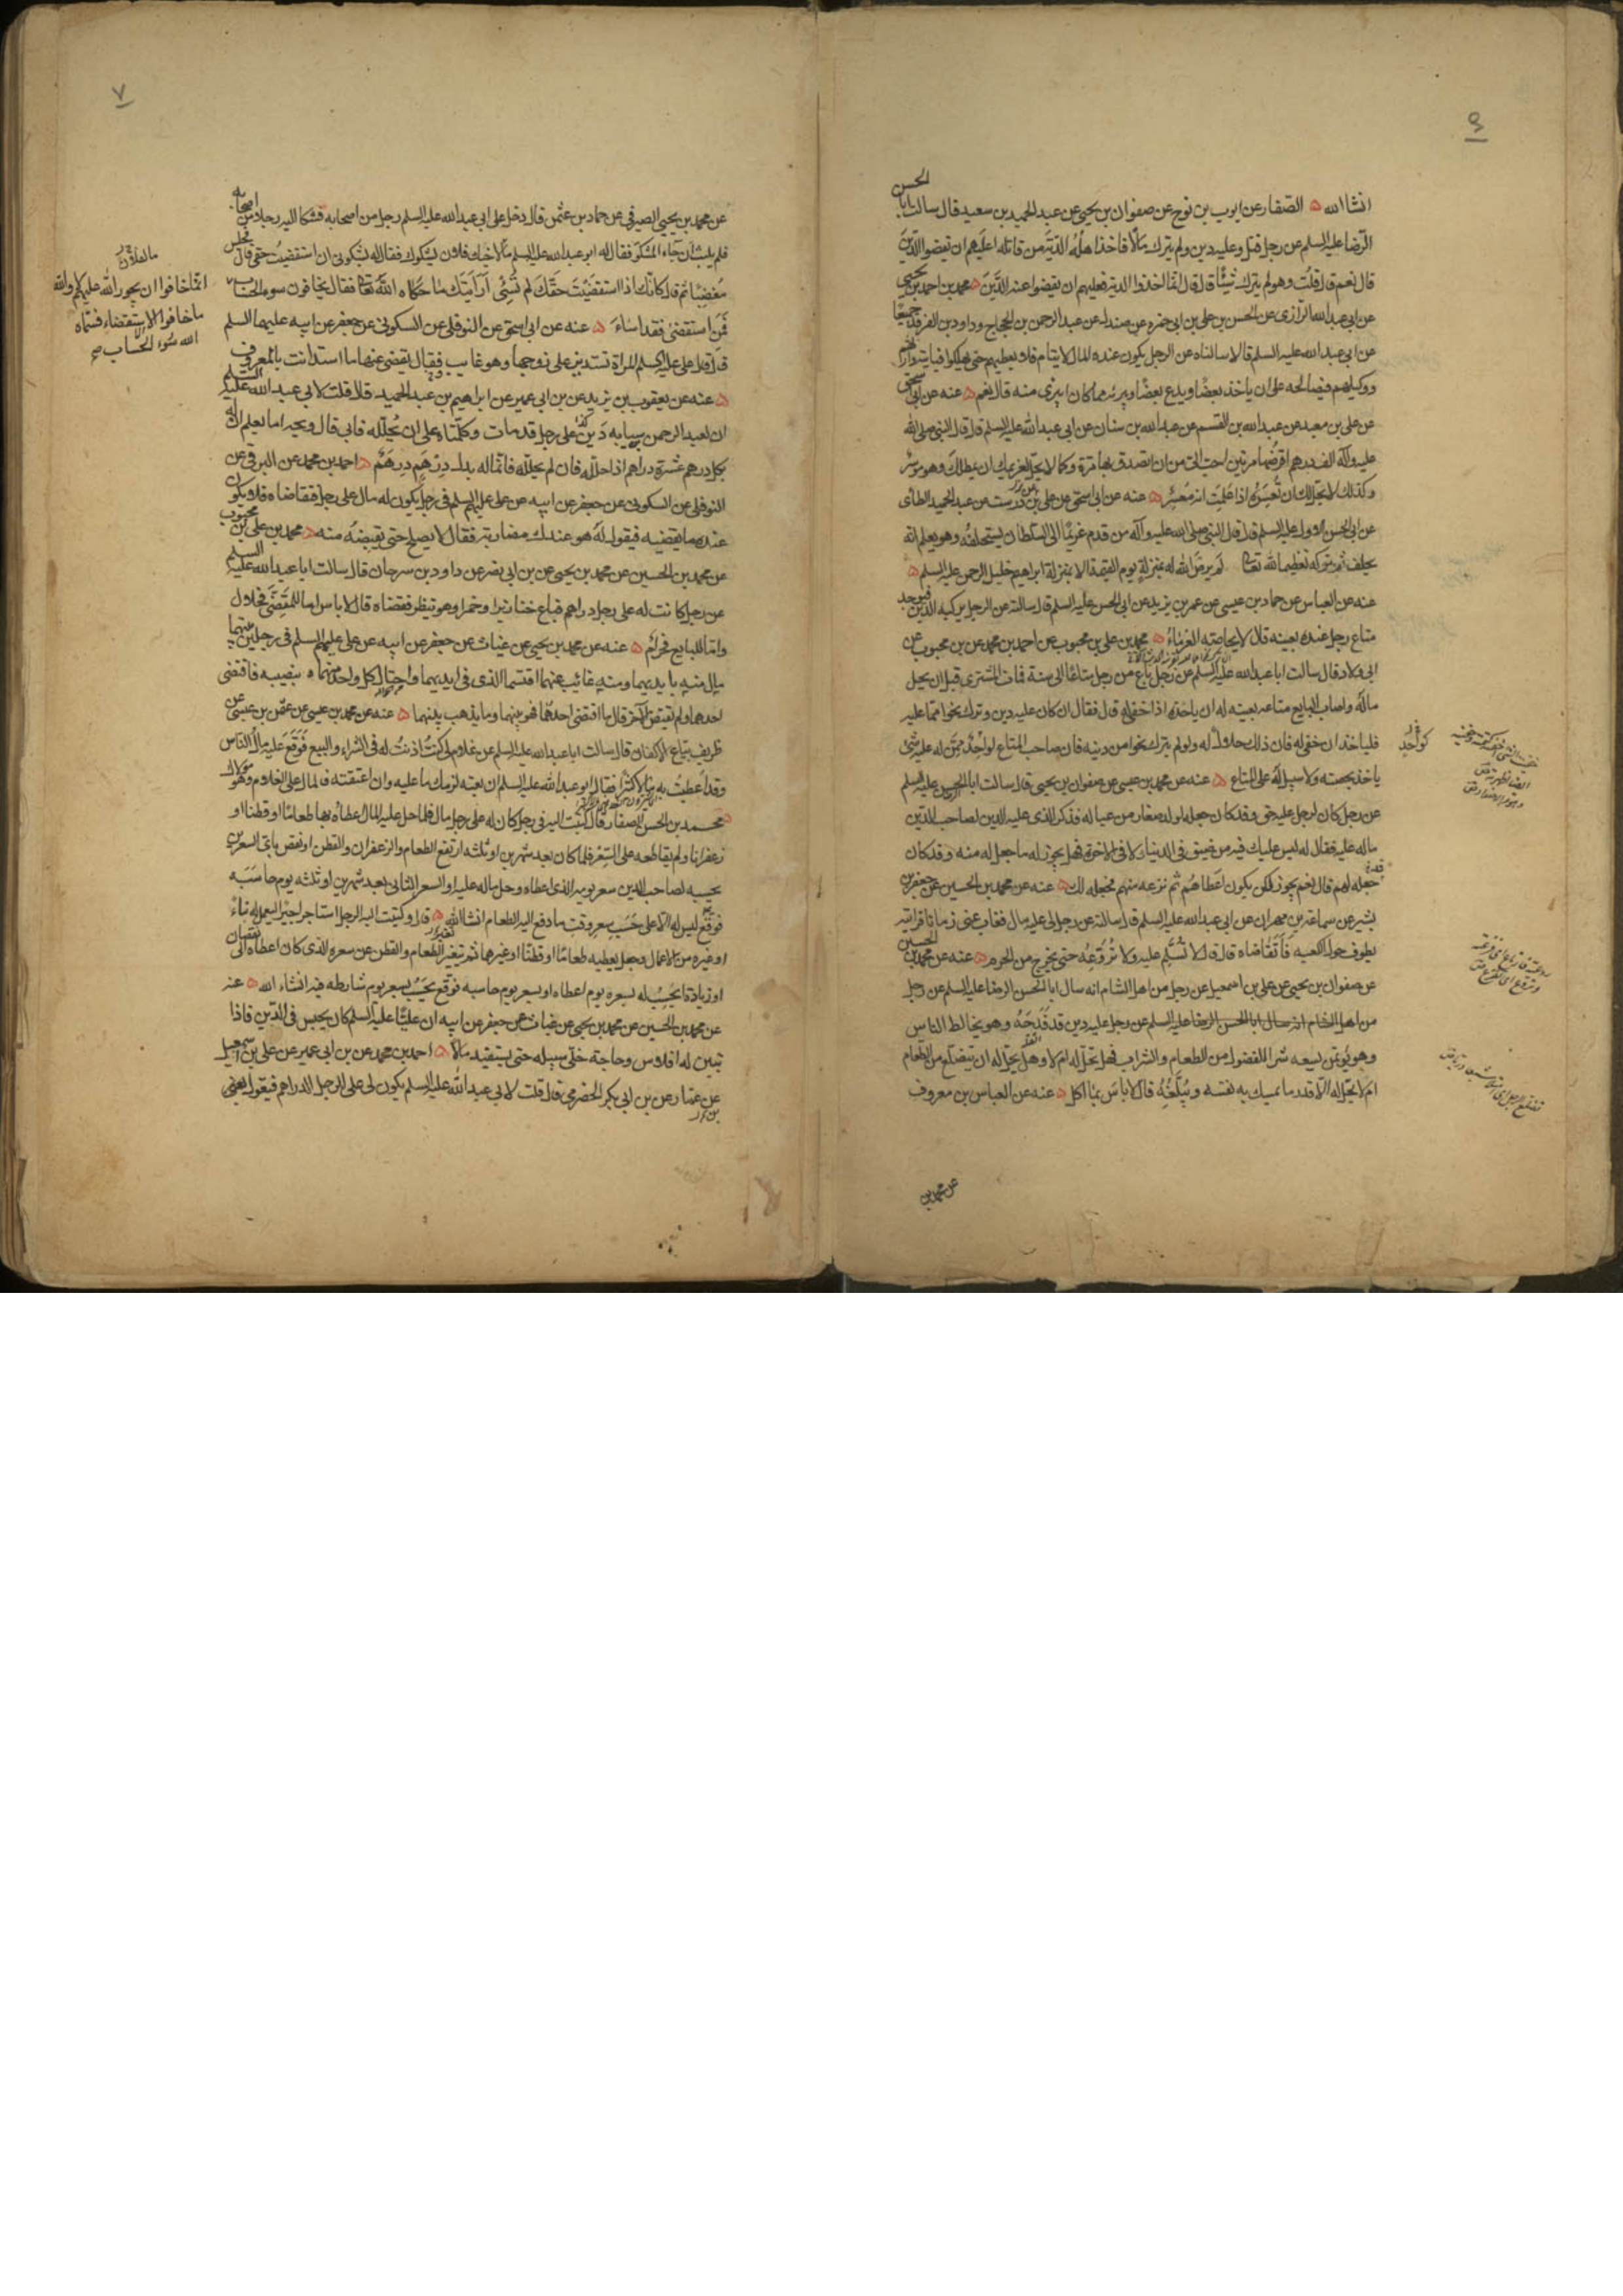 ٦
انشا الله ه الصفار عن ايوب بن نوح عن صفوان بن يحيى عن عبد الحميد بن سعيد قال سالت ابا الحسن
الرضا عليه السلم عن رجل قتل وعليه دين ولم يترك مالا فاخذ اهله الدية من قاتله اعليهم ان يقضوا الدين
قال نعم قال قلت وهو لم يترك شيئا قال قال انما اخذوا الدية فعليهم ان يقضوا عنه الدين ه محمد بن احمد بن يحيى
عن ابي عبد الله الرازي عن الحسن بن علي بن ابي حمزه عن مندل عن عبد الرحمن بن الحجاج وداود بن الفرقد جميعا
عن ابي عبد الله عليه السلم قالا سالناه عن الرجل يكون عنده المال لايتام فلا يعطيهم حتى يهلكوا فياتيه وارثهم
ووكيلهم فيصالحه على ان ياخذ بعضا ويدع بعضا ويبرئه مما كان ايبرى منه قال نعم ه عنه عن ابي اسحق
عن علي بن معبد عن عبد الله بن القسم عن عبد الله بن سنان عن ابي عبد الله عليه السلم قال قال النبي صلى الله
عليه وآله الف درهم اقرضها مرتين احب الى من ان اتصدق بها مرة وكما لا يحل لغريمك ان يمطلك وهو موسر
وكذلك لا يحل لك ان تعسره اذا علمت انه معسر ه عنه عن ابي اسحق عن علي بن درست عن عبد الحميد الطائي
عن ابي الحسن الاول عليه السلم قال قال النبي صلى الله عليه وآله من قدم غريما الى السلطان يستحلفه وهو يعلم انه
يحلف ثم تركه تعظيما لله تعالى لم يرض الله له بمنزلة يوم القيمة الا بمنزلة ابراهيم خليل الرحمن عليه السلم ه
عنه عن العباس عن حماد بن عيسى عن عمر بن يزيد عن ابي الحسن عليه السلم قال سالته عن الرجل يركبه الدين فيوجد
متاع رجل عنده بعينه قال لا يحاصه الغرماء ه محمد بن علي بن محبوب عن احمد بن محمد عن بن محبوب عن
ابي ولاد قال سالت ابا عبد الله عليه السلم عن رجل باع من رجل متاعا الى سنة فمات المشترى قبل ان يحل
ماله واصاب البايع متاعه بعينه له ان ياخذه اذا خفي له قال فقال ان كان عليه دين وترك نحوا مما عليه
فلياخذ ان خفي له فان ذلك حلال له ولو لم يترك نحوا من دينه فان صاحب المتاع لواحد ممن له عليه شئ
ياخذ بحصته ولا سبيل له على المتاع ه عنه عن محمد بن عيسى عن صفوان بن يحيى قال سالت ابا الحسن عليه السلم
عن رجل كان لرجل عليه حق وقد كان جعله لولد صغار من عياله فذكر الذى عليه الدين لصاحب الدين
ماله عليه فقال له ليس عليك فيه من ضيق في الدنيا ولا في الآخرة فهل يجوز له ما جعل له منه وقد كان
جعله لهم قال نعم يجوز لكن يكون اعطاهم ثم نزعه منهم فجعله لك ه عنه عن محمد بن الحسين عن جعفر بن
بشير عن سماعة بن مهران عن ابي عبد الله عليه السلم قال سالته عن رجل لي عليه مال فغاب عني زمانا فرايته
يطوف حول الكعبه فاتقاضاه قال قال لا تسلم عليه ولا تروعه حتى يخرج من الحرم ه عنه عن محمد بن الحسين
عن صفوان بن يحيى عن علي بن اسمعيل عن رجل من اهل الشام انه سال ابا الحسن الرضا عليه السلم عن رجل
من اهل الشام انه سال ابا الحسن الرضا عليه السلم عن رجل عليه دين قد فدحه وهو يخالط الناس
وهو يؤتمن يسعه شرا الفضول من الطعام والشراب فهل يحل له ام لا وهل يحل له ان يتضلع من الطعام
ام لا يحل له الا قدر ما يمسك به نفسه ويبلغه قال لا باس بما اكل ه عنه عن العباس بن معروف
عن محمد بن
٧
عن محمد بن يحيى الصيرفي عن حماد بن عثمن قال دخل على ابي عبد الله عليه السلم رجل من اصحابه فشكا اليه رجلا من اصحابه
فلم يلبث ان جاء المشكو فقال له ابو عبد الله عليه السلم ما لاخيك فلان يشكوك فقال له يشكوني ان استقضيت حقي قال فجلس
مغضبا ثم قال كانك اذا استقضيت حقك لم تسئ أرأيتك ما حكاه الله تعالى فقال يخافون سوء الحساب
فمن استقضى فقد اساء ه عنه عن ابي اسحق عن النوفلي عن السكوني عن جعفر عن ابيه عليهما السلم
قال قال علي عليه السلم المراة تستدين على زوجها وهو غايب فقال يقضى عنها ما استدانت بالمعروف
ه عنه عن يعقوب بن يزيد عن بن ابي عمير عن ابراهيم بن عبد الحميد قال قلت لابي عبد الله عليه السلم
ان لعبد الرحمن بن سيابه دين على رجل قد مات وكلمناه على ان يحلله فابى قال ويحه اما يعلم ان له
بكل درهم عشرة دراهم اذا حلله فان لم يحلله فانما له بدل درهم درهم ه احمد بن محمد عن البرقي عن
النوفلي عن السكوني عن جعفر عن ابيه عن علي عليهم السلم في رجل يكون له مال على رجل فتقاضاه فلا يكون
عنده ما يقضيه فيقول له هو عندك مضاربة فقال لا يصلح حتى يقبضه منه ه محمد بن علي بن محبوب
عن محمد بن الحسين عن محمد بن يحيى عن بن ابي نصر عن داود بن سرحان قال سالت ابا عبد الله عليه السلم
عن رجل كانت له على رجل دراهم فباع خنازيرا وخمرا وهو ينظر فقضاه قال لا باس اما للمقضى فحلال
واما للبايع فحرام ه عنه عن محمد بن يحيى عن غياث عن جعفر عن ابيه عن علي عليهم السلم في رجلين بينهما
مال منه بايديهما ومنه غائب عنهما اقتسما الذى في ايديهما واحتال كل واحد منهما بنصيبه فاقتضى
احدهما ولم يقتض الآخر قال ما اقتضى احدهما فهو بينهما وما يذهب بينهما ه عنه عن محمد بن عيسى عن عثمن بن عيسى عن
ظريف بياع الاكفان قال سالت ابا عبد الله عليه السلم عن غلام لي كنت اذنت له في الشراء والبيع فوقع عليه مال الناس
وقد اعطيت به مالا كثيرا فقال ابو عبد الله عليه السلم ان بعته لزمك ما عليه وان اعتقته فالمال على الغلام وهو مولاك
ه محمد بن الحسن الصفار قال كتبت اليه في رجل كان له على رجل مال فلما حل عليه المال اعطاه بها طعاما او قطنا او
زعفرانا ولم يقاطعه على السعر فلما كان بعد شهرين او ثلثه ارتفع الطعام والزعفران والقطن او نقص باى السعرين
يحسبه لصاحب الدين سعر يومه الذى اعطاه وحل ماله عليه او السعر الثاني بعد شهرين او ثلثه يوم حاسبه
فوقع ليس له الا على حسب سعر وقت ما دفع اليه الطعام انشا الله ه قال وكتبت اليه الرجل استاجر اجيرا ليعمل له بناء
او غيره من الاعمال وجعل يعطيه طعاما او قطنا او غيرهما ثم تغير الطعام والقطن عن سعره الذى كان اعطاه الى نقصان
او زيادة ايحسب له بسعره يوم اعطاه او بسعر يوم حاسبه فوقع يحسب بسعر يوم شارطه فيه انشاء الله ه عنه
عن محمد بن الحسين عن محمد بن يحيى عن غياث عن جعفر عن ابيه ان عليا عليه السلم كان يحبس في الدين فاذا
تبين له افلاس وحاجة خلى سبيله حتى يستفيد مالا ه احمد بن محمد عن بن ابي عمير عن علي بن اسمعيل
عن عمار عن بن ابي بكر الحضرمي قال قلت لابي عبد الله عليه السلم يكون لي على الرجل الدراهم فيقول بعني
انما خافوا ان يجور الله عليهم لا والله
ما خافوا الا الاستقضاء فسماه
الله سوء الحساب صح